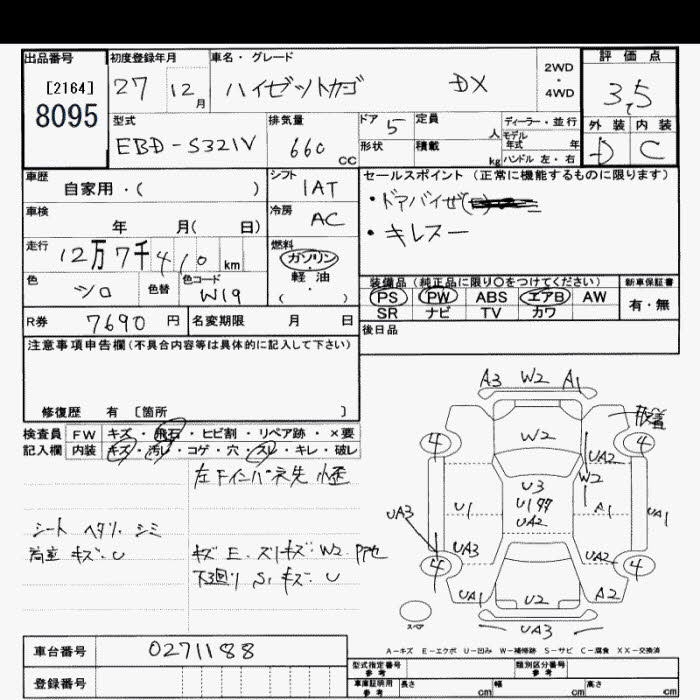 出品番号 初度登録年月 車名・グレード 評価点
[2164]
8095
27 12月 ハイゼットカーゴ DX 2WD・4WD 3.5
型式 排気量 ドア 定員 ディーラー・並行 外装 内装
EBD-S321V 660 CC 5 人 モデル年式 年 D C
形状 積載 kg ハンドル 左・右
車歴 シフト セールスポイント(正常に機能するものに限ります)
自家用・( ) IAT ・ドアバイザ
車検 冷房 ・キレスー
年 月( 日) AC
走行 燃料
12万7千410 km ガソリン・軽油・( )
色 色替 色コード 装備品(純正品に限り○をつけてください) 新車保証書
シロ W19 PS PW ABS エアB AW 有・無
SR ナビ TV カワ
R券 7690円 名変期限 月 日 後日品
注意事項申告欄(不具合内容等は具体的に記入して下さい)
修復歴 有 [箇所 ]
検査員 FW キズ・飛石・ヒビ割・リペア跡・×要
記入欄 内装 キズ・汚レ・コゲ・穴・スレ・キレ・破レ
A3 W2 A1
4 W2 4
UA2
W2
U3
UA3 U1 U177 A1 UA1
UA2
UA3 UA2
4 4
UA1 U2 A2
UA3
スペア
シート ヘタリ、シミ
キズ・U キズ E、スリキズ・W2
下回り S、キズ・U
A-キズ E-エクボ U-凹み W-補修跡 S-サビ C-腐食 XX-交換済
車台番号 0271188
登録番号
型式指定番号 参考 類別区分番号 参考
車庫証明用 参考 長さ cm 幅 cm 高さ cm